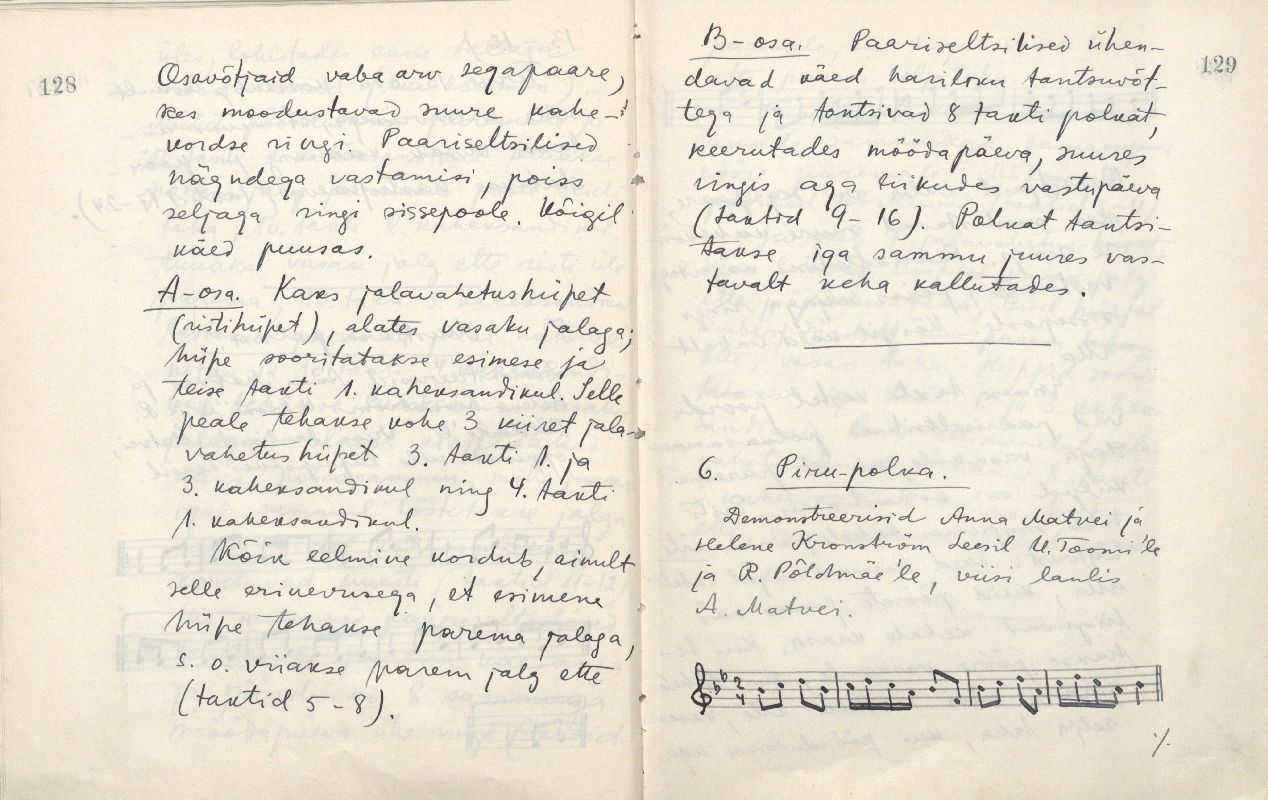 128
Osavõtjaid vaba arv segapaare,
kes moodustavad suure kahe-
kordse ringi. Paariseltsilised
nägudega vastamisi, poiss
seljaga ringi sissepoole. Kõigil
käed puusas.
A-osa. Kaks jalavahetushüpet
(ristihüpet), alates vasaku jalaga;
hüpe sooritatakse esimese ja
teise takti 1. kaheksandikul. Selle
peale tehakse kohe 3 kiiret jala-
vahetushüpet 3. takti 1. ja
3. kaheksandikul ning 4. takti
1. kaheksandikul.
Kõik eelmine kordub, ainult
selle erinevusega, et esimene
hüpe tehakse parema jalaga,
s. o. viiakse parem jalg ette
(taktid 5-8).
129
B-osa. Paariseltsilised ühen-
davad käed hariliku tantsuvõt-
tega ja tantsivad 8 takti polkat,
keerutades möödapäeva, suures
ringis aga liikudes vastupäeva
(taktid 9-16). Polkat tantsi-
takse iga sammu juures vas-
tavalt keha kallutades.
6. Piru-polka.
Demonstreerisid Anna Matvei ja
Helene Kronström Leesil U. Toomi'le
ja R. Põldmäe'le, viisi laulis
A. Matvei.
2
4
·/.